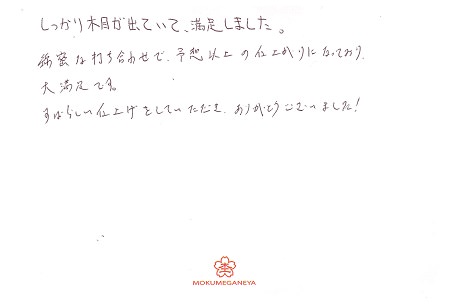 しっかり木目が出ていて、満足しました。
綿密な打ち合わせで、予想以上の仕上がりになっており、
大満足です。
すばらしい仕上げをしていただき、ありがとうございました!
MOKUMEGANEYA